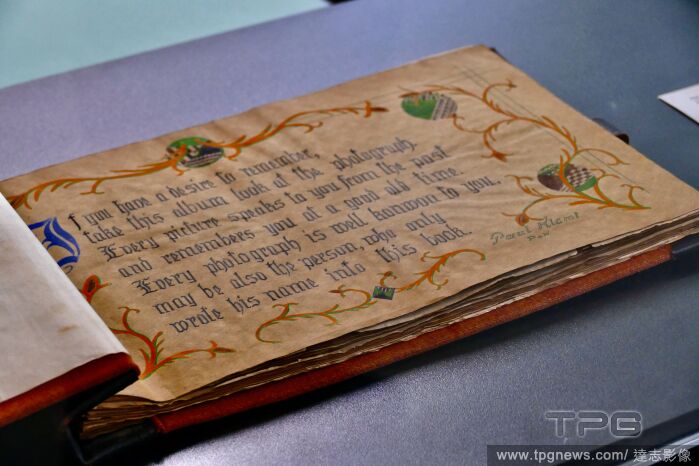 If you have a desire to remember,
take this album look at the photograph.
Every picture speaks to you from the past
and remembers you at a good old time.
Every photograph is well kanwon to you,
may be also the person, who only
wrote his name into this book.
Paul
TPG
www.tpgnews.com/ 達志影像